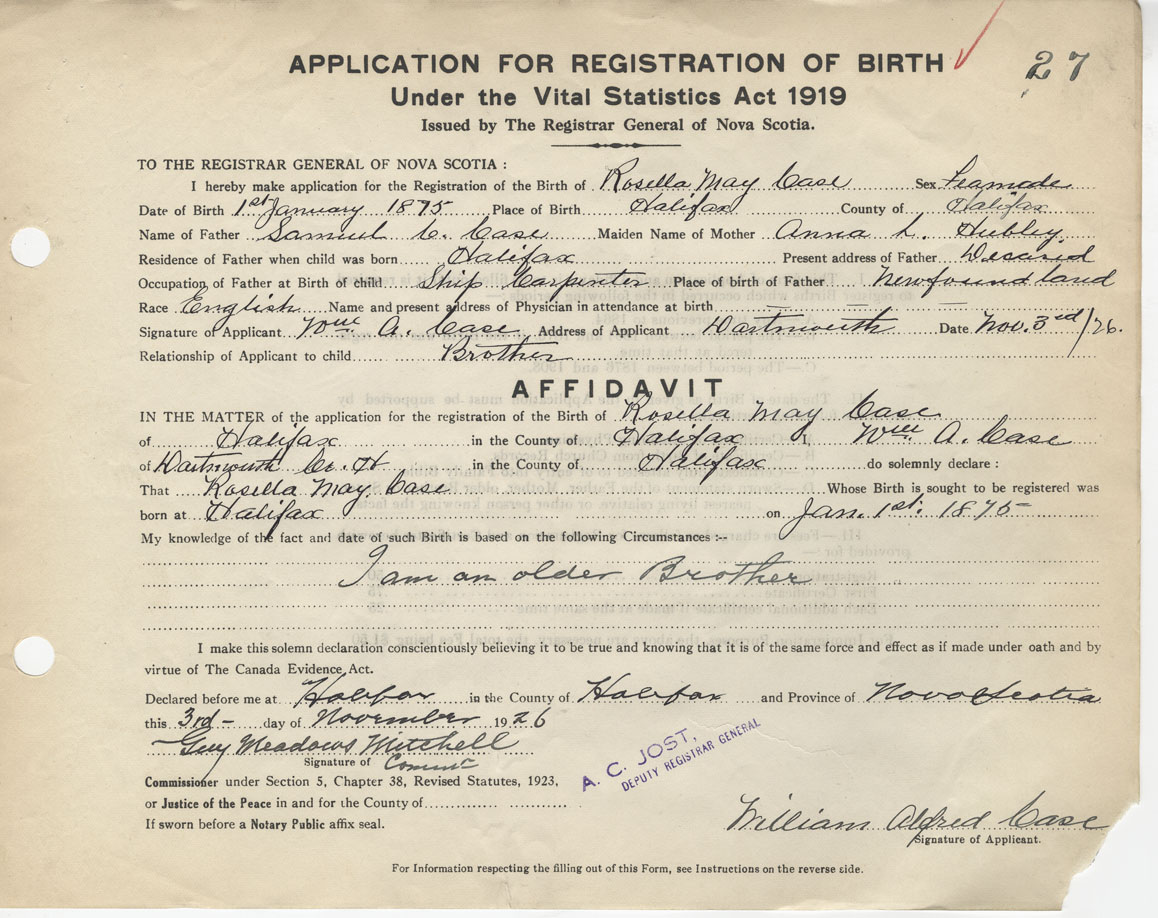 APPLICATION FOR REGISTRATION OF BIRTH 27
Under the Vital Statistics Act 1919
Issued by The Registrar General of Nova Scotia.
TO THE REGISTRAR GENERAL OF NOVA SCOTIA :
I hereby make application for the Registration of the Birth of Rosella May Case Sex
Date of Birth 1st January 1875 Place of Birth Halifax County of Halifax
Name of Father Samuel C. Case Maiden Name of Mother Anna L. Hubley
Residence of Father when child was born Halifax Present address of Father
Occupation of Father at Birth of child Ship Carpenter Place of birth of Father Newfoundland
Race English Name and present address of Physician in attendance at birth
Signature of Applicant Wm A. Case Address of Applicant Dartmouth Date Nov. 3rd/26.
Relationship of Applicant to child Brother
AFFIDAVIT
IN THE MATTER of the application for the registration of the Birth of Rosella May Case
of Halifax in the County of Halifax I, Wm A. Case
of Dartmouth in the County of Halifax do solemnly declare :
That Rosella May Case Whose Birth is sought to be registered was
born at Halifax on Jan. 1st. 1875
My knowledge of the fact and date of such Birth is based on the following Circumstances :--
I am an older Brother
I make this solemn declaration conscientiously believing it to be true and knowing that it is of the same force and effect as if made under oath and by
virtue of The Canada Evidence Act.
Declared before me at Halifax in the County of Halifax and Province of Nova Scotia
this 3rd - day of November 1926
Guy Meadows Mitchell
Signature of
A. C. JOST,
DEPUTY REGISTRAR GENERAL
Commissioner under Section 5, Chapter 38, Revised Statutes, 1923,
or Justice of the Peace in and for the County of
If sworn before a Notary Public affix seal.
William Alfred Case
Signature of Applicant.
For Information respecting the filling out of this Form, see Instructions on the reverse side.